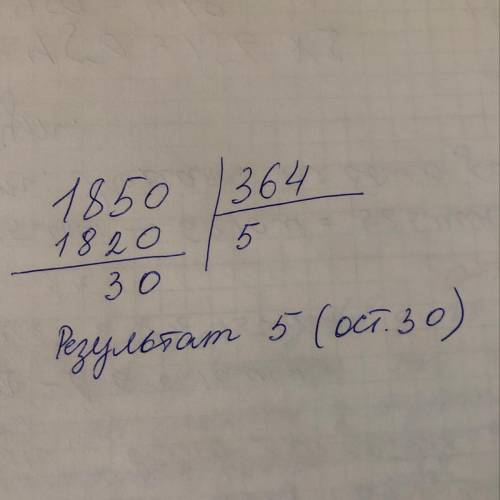 1850 364
1820 5
30
Результат 5 (ост. 30)